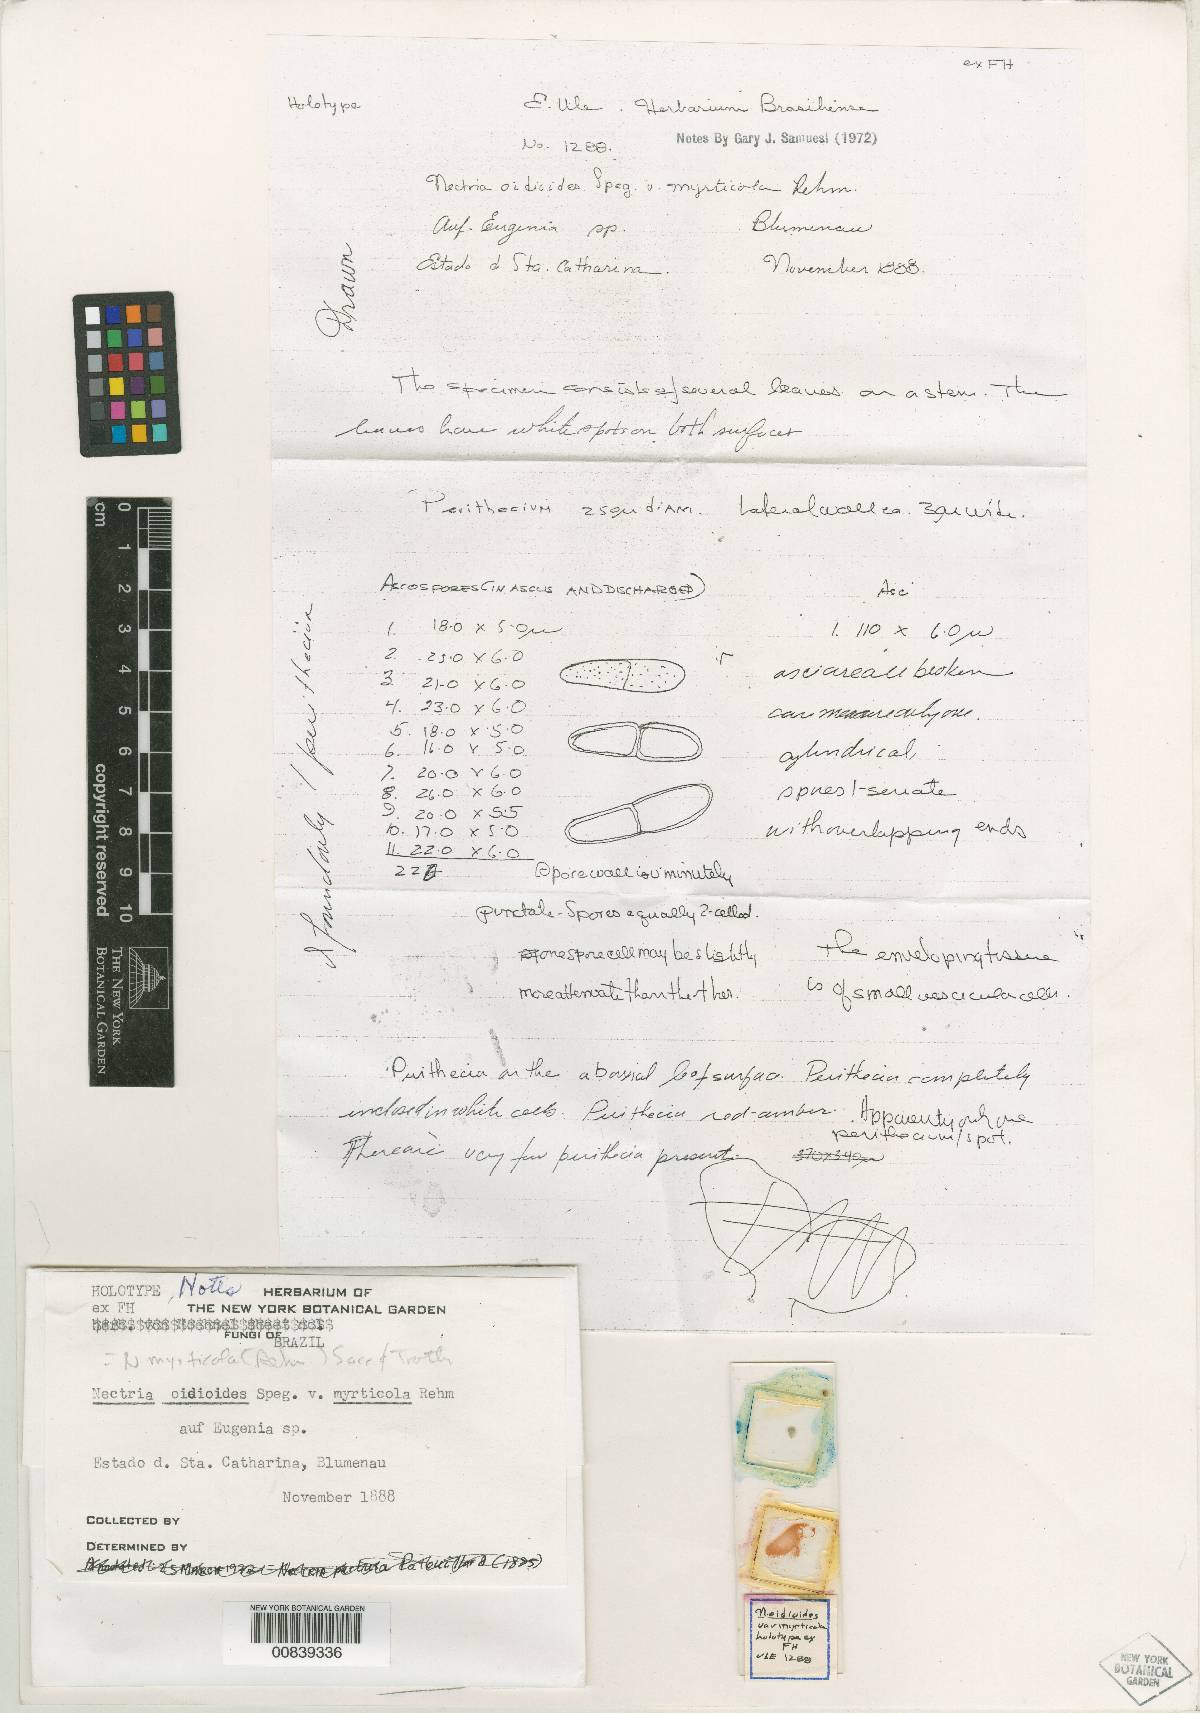 ex FH
Holotype E. Ule . Herbarium Brasiliense
No. 1288. Notes By Gary J. Samuesl (1972)
Nectria oidioides Speg. v. myrticola Rehm.
Auf. Eugenia sp. Blumenau
Estado d Sta. Catharina. November 1888.
Drawn
The specimen consists of several leaves on a stem. The
leaves have white spots on both surfaces
Perithecium 250µ diam. Lateral wall ca. 30µ wide.
Ascospores (in ascus and discharged) Asci
1. 18.0 x 5.0µ 1. 110 x 6.0µ
2. 25.0 x 6.0
3. 21.0 x 6.0 asci are all broken
4. 23.0 x 6.0 can measure only one.
5. 18.0 x 5.0
6. 16.0 x 5.0 cylindrical,
7. 20.0 x 6.0
8. 26.0 x 6.0 spores 1-seriate
9. 20.0 x 5.5
10. 17.0 x 5.0 with overlapping ends
11. 22.0 x 6.0
I found only 1 perithecium
Spore wall is minutely
punctate - Spores equally 2-celled.
or one spore cell may be slightly
more attenuate than the other.
The enveloping tissue
is of small vesicular cells.
Perithecia on the abaxial leaf surface. Perithecia completely
enclosed in white cells. Perithecia red-amber. Apparently only one
perithecium/spot.
There are very few perithecia present. 370x340µ
cm
0
1
2
3
4
5
6
7
8
9
10
copyright reserved
THE NEW YORK
BOTANICAL GARDEN
HOLOTYPE, Notes HERBARIUM OF
ex FH THE NEW YORK BOTANICAL GARDEN
FUNGI OF
BRAZIL
= N myrticola (Rehm) Sacc & Trott
Nectria oidioides Speg. v. myrticola Rehm
auf Eugenia sp.
Estado d. Sta. Catharina, Blumenau
November 1888
COLLECTED BY
DETERMINED BY
NEW YORK BOTANICAL GARDEN
00839336
N. oidioides
var myrticola
holotype ex
FH
ULE 1288
NEW YORK
BOTANICAL
GARDEN